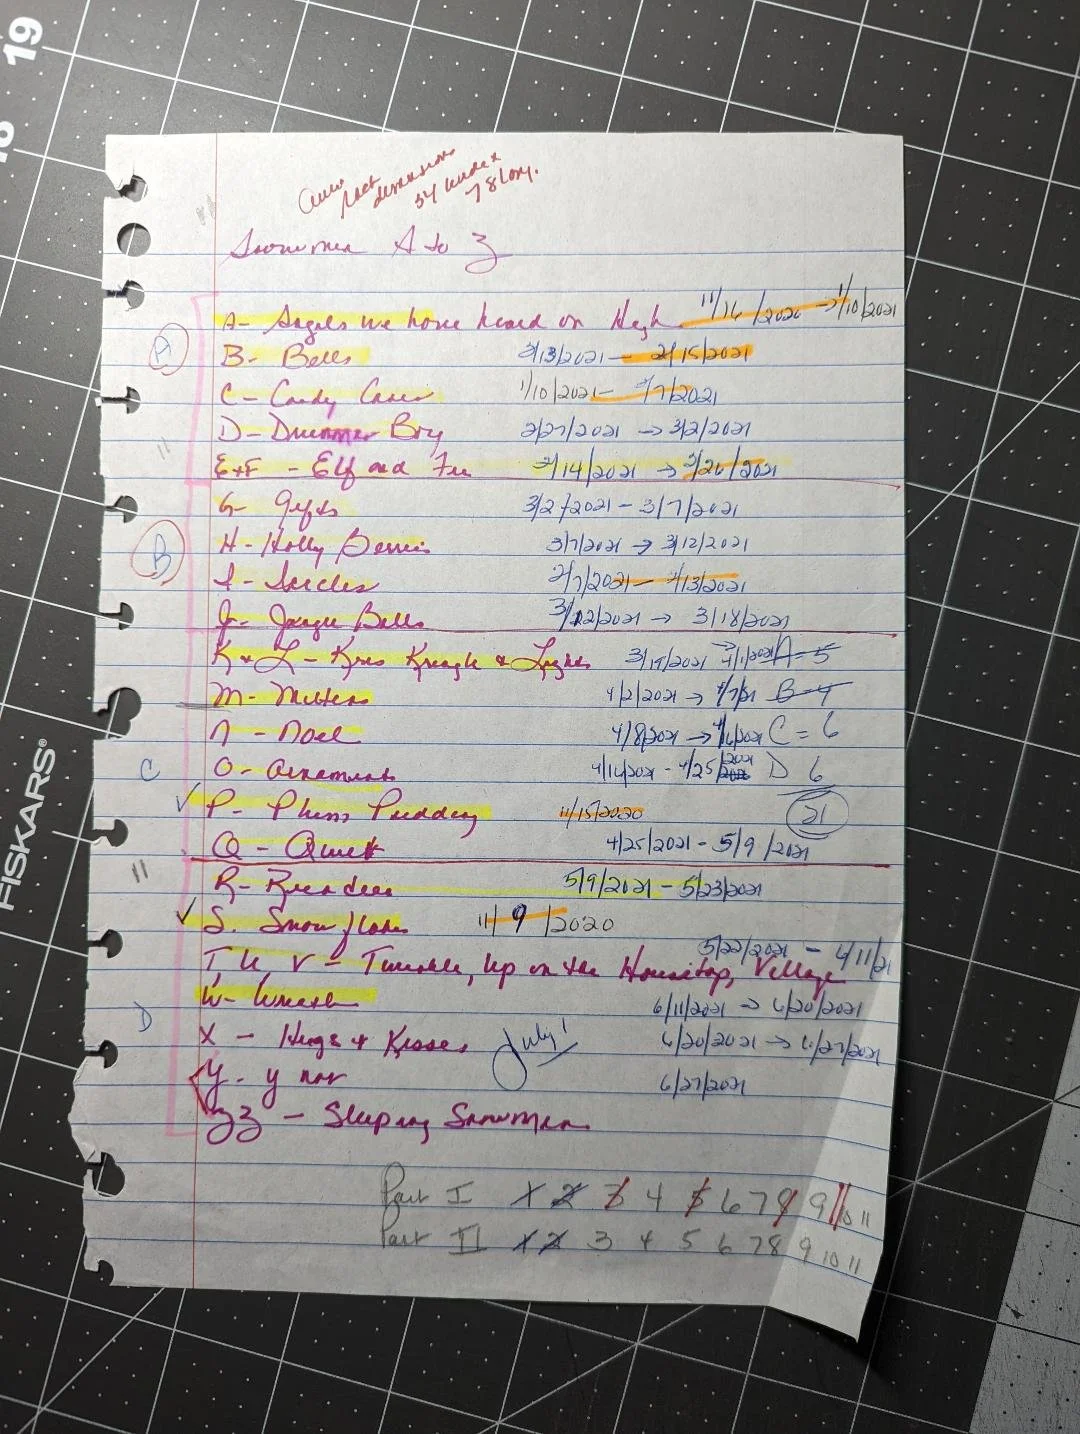 19
18
FISKARS®
54 wide x
78 long.
Snowmen A to Z
A- Angels we have heard on High 11/16/2020 → 1/10/2021
A
B- Bells 2/13/2021 — 2/15/2021
C- Candy Canes 1/10/2021 — 2/7/2021
D- Drummer Boy 2/27/2021 → 3/2/2021
11
E+F - Elf and Fir 2/14/2021 → 2/26/2021
G- Gifts 3/2/2021 - 3/7/2021
H- Holly Berries 3/7/2021 → 3/12/2021
B
I- Icicles 2/7/2021 — 2/13/2021
J- Jingle Bells 3/12/2021 → 3/18/2021
K+L- Kris Kringle & Lights 3/19/2021 → 4/1/2021 A=5
M- Mittens 4/2/2021 → 4/7/21 B-4
N- Noel 4/8/2021 → 4/16/2021 C=6
C
O- Ornaments 4/16/2021 - 4/25/2021 D 6
✓ P- Plum Pudding 11/15/2020 21
Q- Quiet 4/25/2021 - 5/9/2021
11
R- Reindeer 5/9/2021 - 5/23/2021
✓ S. Snowflakes 11/9/2020
5/22/2021 - 6/11/21
T, U, V - Twinkle, Up on the Housetop, Village
W- Wreath 6/11/2021 → 6/20/2021
D
X - Hugs & Kisses July 1 6/20/2021 → 6/27/2021
Y- Y not 6/27/2021
ZZ - Sleeping Snowman
Part I 1 2 3 4 5 6 7 8 9 10 11
Part II 1 2 3 4 5 6 7 8 9 10 11